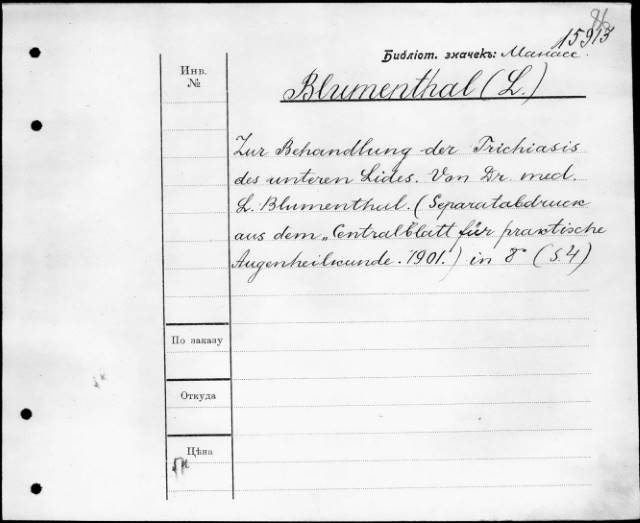 15913
Библіот. значекъ: Манасс.
Инв.
№
Blumenthal (L.)
Zur Behandlung der Trichiasis
des unteren Lides. Von Dr. med.
L. Blumenthal. (Separatabdruck
aus dem „Centralblatt für praktische
Augenheilkunde. 1901.) in 8° (S. 4)
По заказу
Откуда
Цѣна